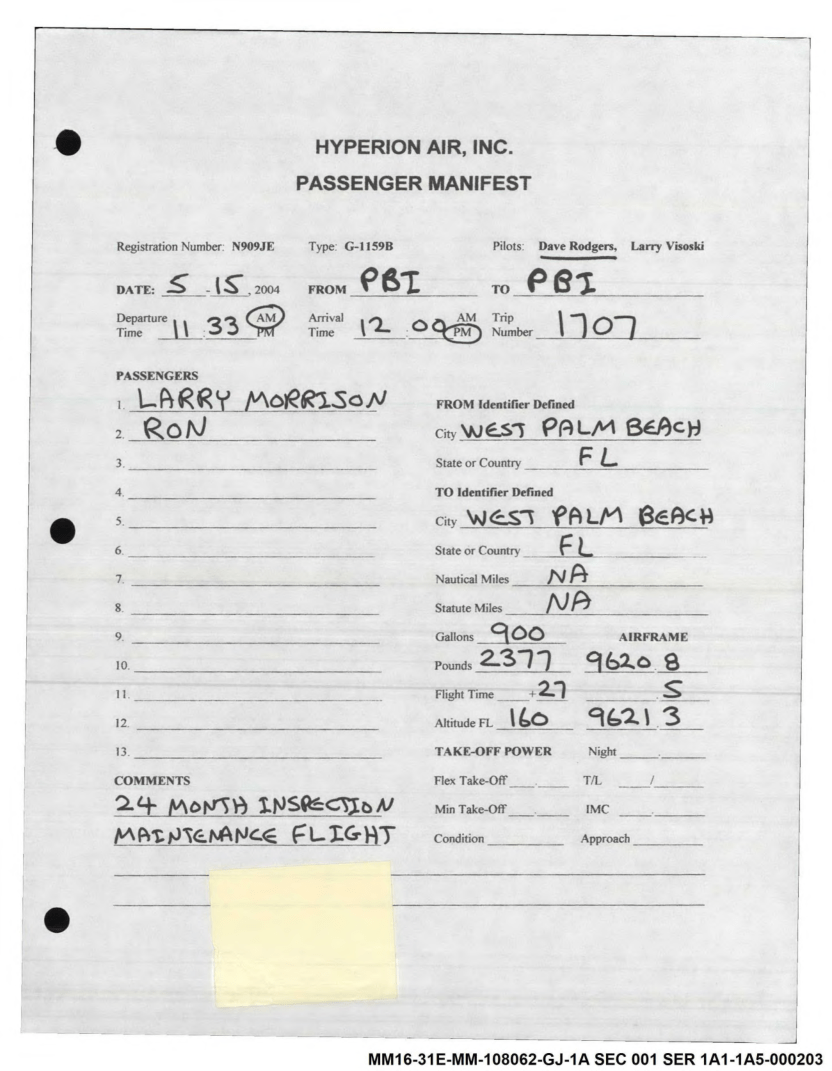 HYPERION AIR, INC.
PASSENGER MANIFEST
Registration Number: N909JE Type: G-1159B Pilots: Dave Rodgers, Larry Visoski
DATE: 5 - 15, 2004 FROM PBI TO PBI
Departure Time 11:33 AM PM Arrival Time 12:00 AM PM Trip Number 1707
PASSENGERS
1. LARRY MORRISON
2. RON
3.
4.
5.
6.
7.
8.
9.
10.
11.
12.
13.
FROM Identifier Defined
City WEST PALM BEACH
State or Country FL
TO Identifier Defined
City WEST PALM BEACH
State or Country FL
Nautical Miles NA
Statute Miles NA
Gallons 900 AIRFRAME
Pounds 2377 9620.8
Flight Time +27 .5
Altitude FL 160 9621.3
TAKE-OFF POWER Night
Flex Take-Off T/L /
Min Take-Off IMC
Condition Approach
COMMENTS
24 MONTH INSPECTION
MAINTENANCE FLIGHT
MM16-31E-MM-108062-GJ-1A SEC 001 SER 1A1-1A5-000203